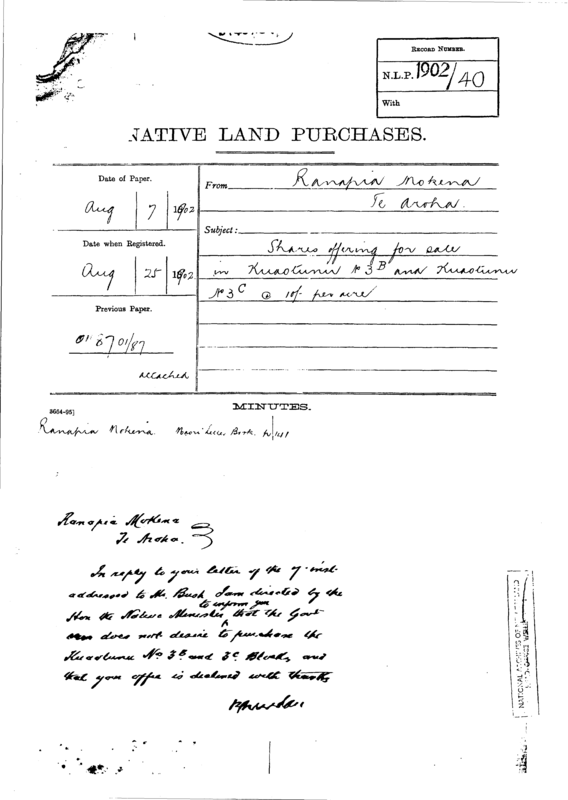 RECORD NUMBER.
N.L.P. 1902/40
With
NATIVE LAND PURCHASES.
Date of Paper.
Aug 7 1902
Date when Registered.
Aug 25 1902
Previous Paper.
8701/87
attached
From Ranapia Mokena
Te Aroha.
Subject:
Shares offering for sale
in Kuaotunu No 3B and Kuaotunu
No 3C @ 10/- per acre
3664-95]
MINUTES.
Ranapia Mokena Book
Ranapia Mokena
Te Aroha.
In reply to your letter of the 7 inst.
addressed to Mr. Bush I am directed by the
Hon the Native Minister to inform you that the Govt
does not desire to purchase the
Kuaotunu No 3B and 3C Blocks, and
that your offer is declined with thanks
NATIONAL ARCHIVES OF